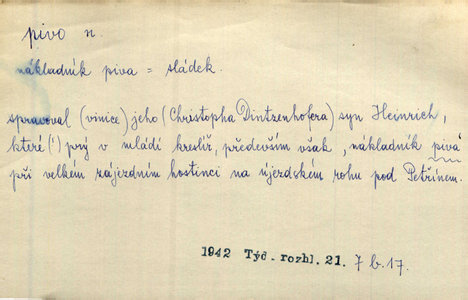 pivo n.
nákladník piva = sládek.
spravoval (vinice) jeho (Christopha Dintzenhofera) syn Heinrich,
které (!) prý v mládí kreslíř, především však „nákladník piva“
při velkém zájezdním hostinci na újezdském rohu pod Petřínem.
1942 Týd. rozhl. 21. 7 b. 17.